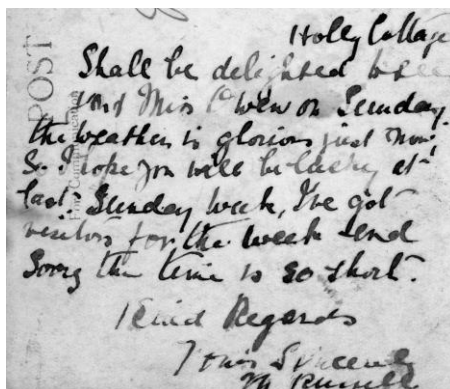 Holly Cottage
Shall be delighted to see
you & Miss Owen on Sunday.
the weather is glorious just now,
So I hope you will be lucky at
last. Sunday week, I've got
visitors for the week-end
Sorry the time is so short.
Kind Regards
Yours Sincerely
Russell
POST